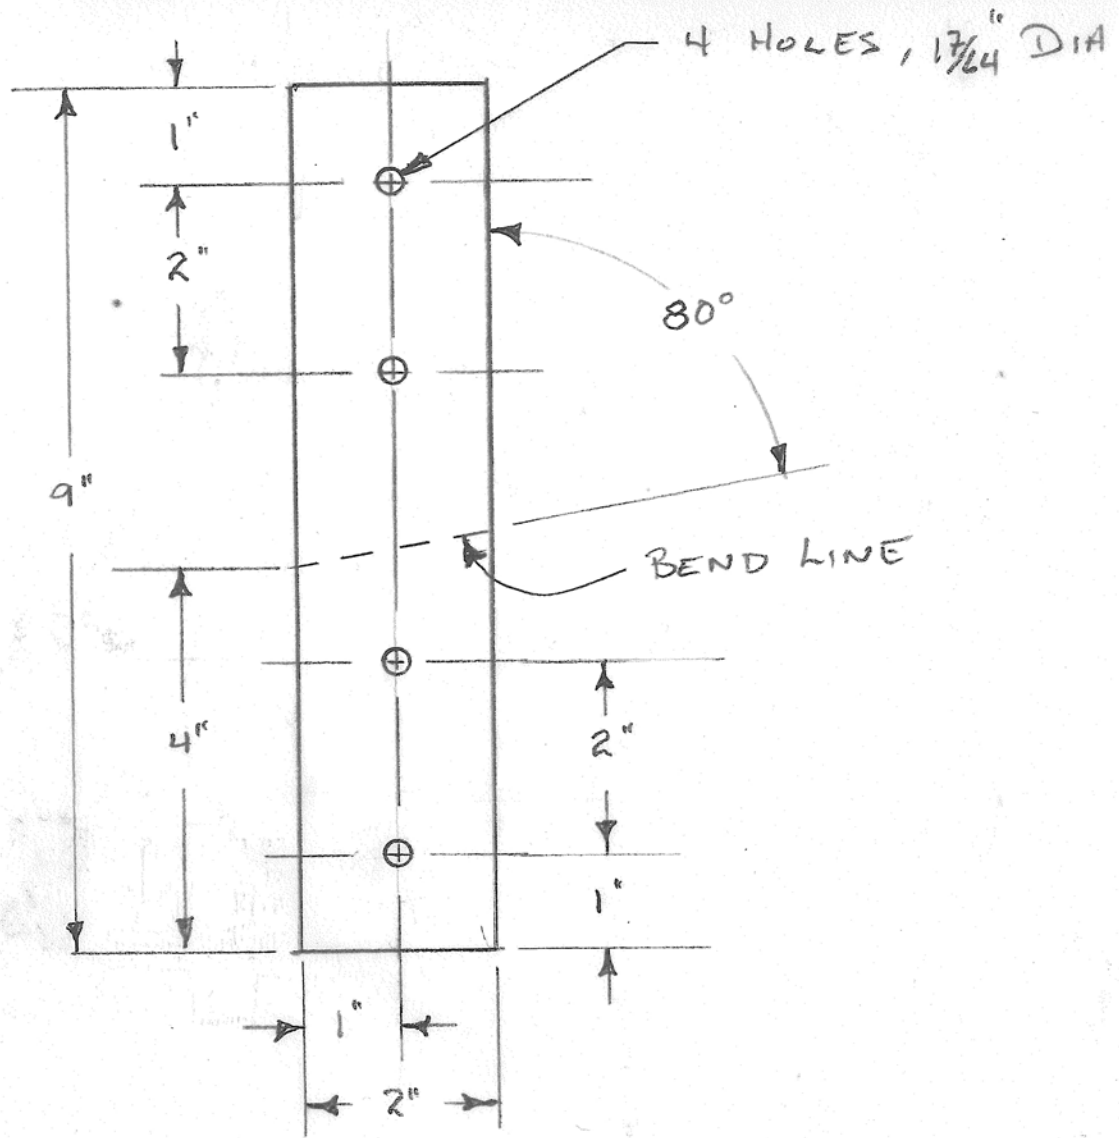 4 HOLES, 17/64" DIA
1"
2"
80°
9"
BEND LINE
4"
2"
1"
1"
2"